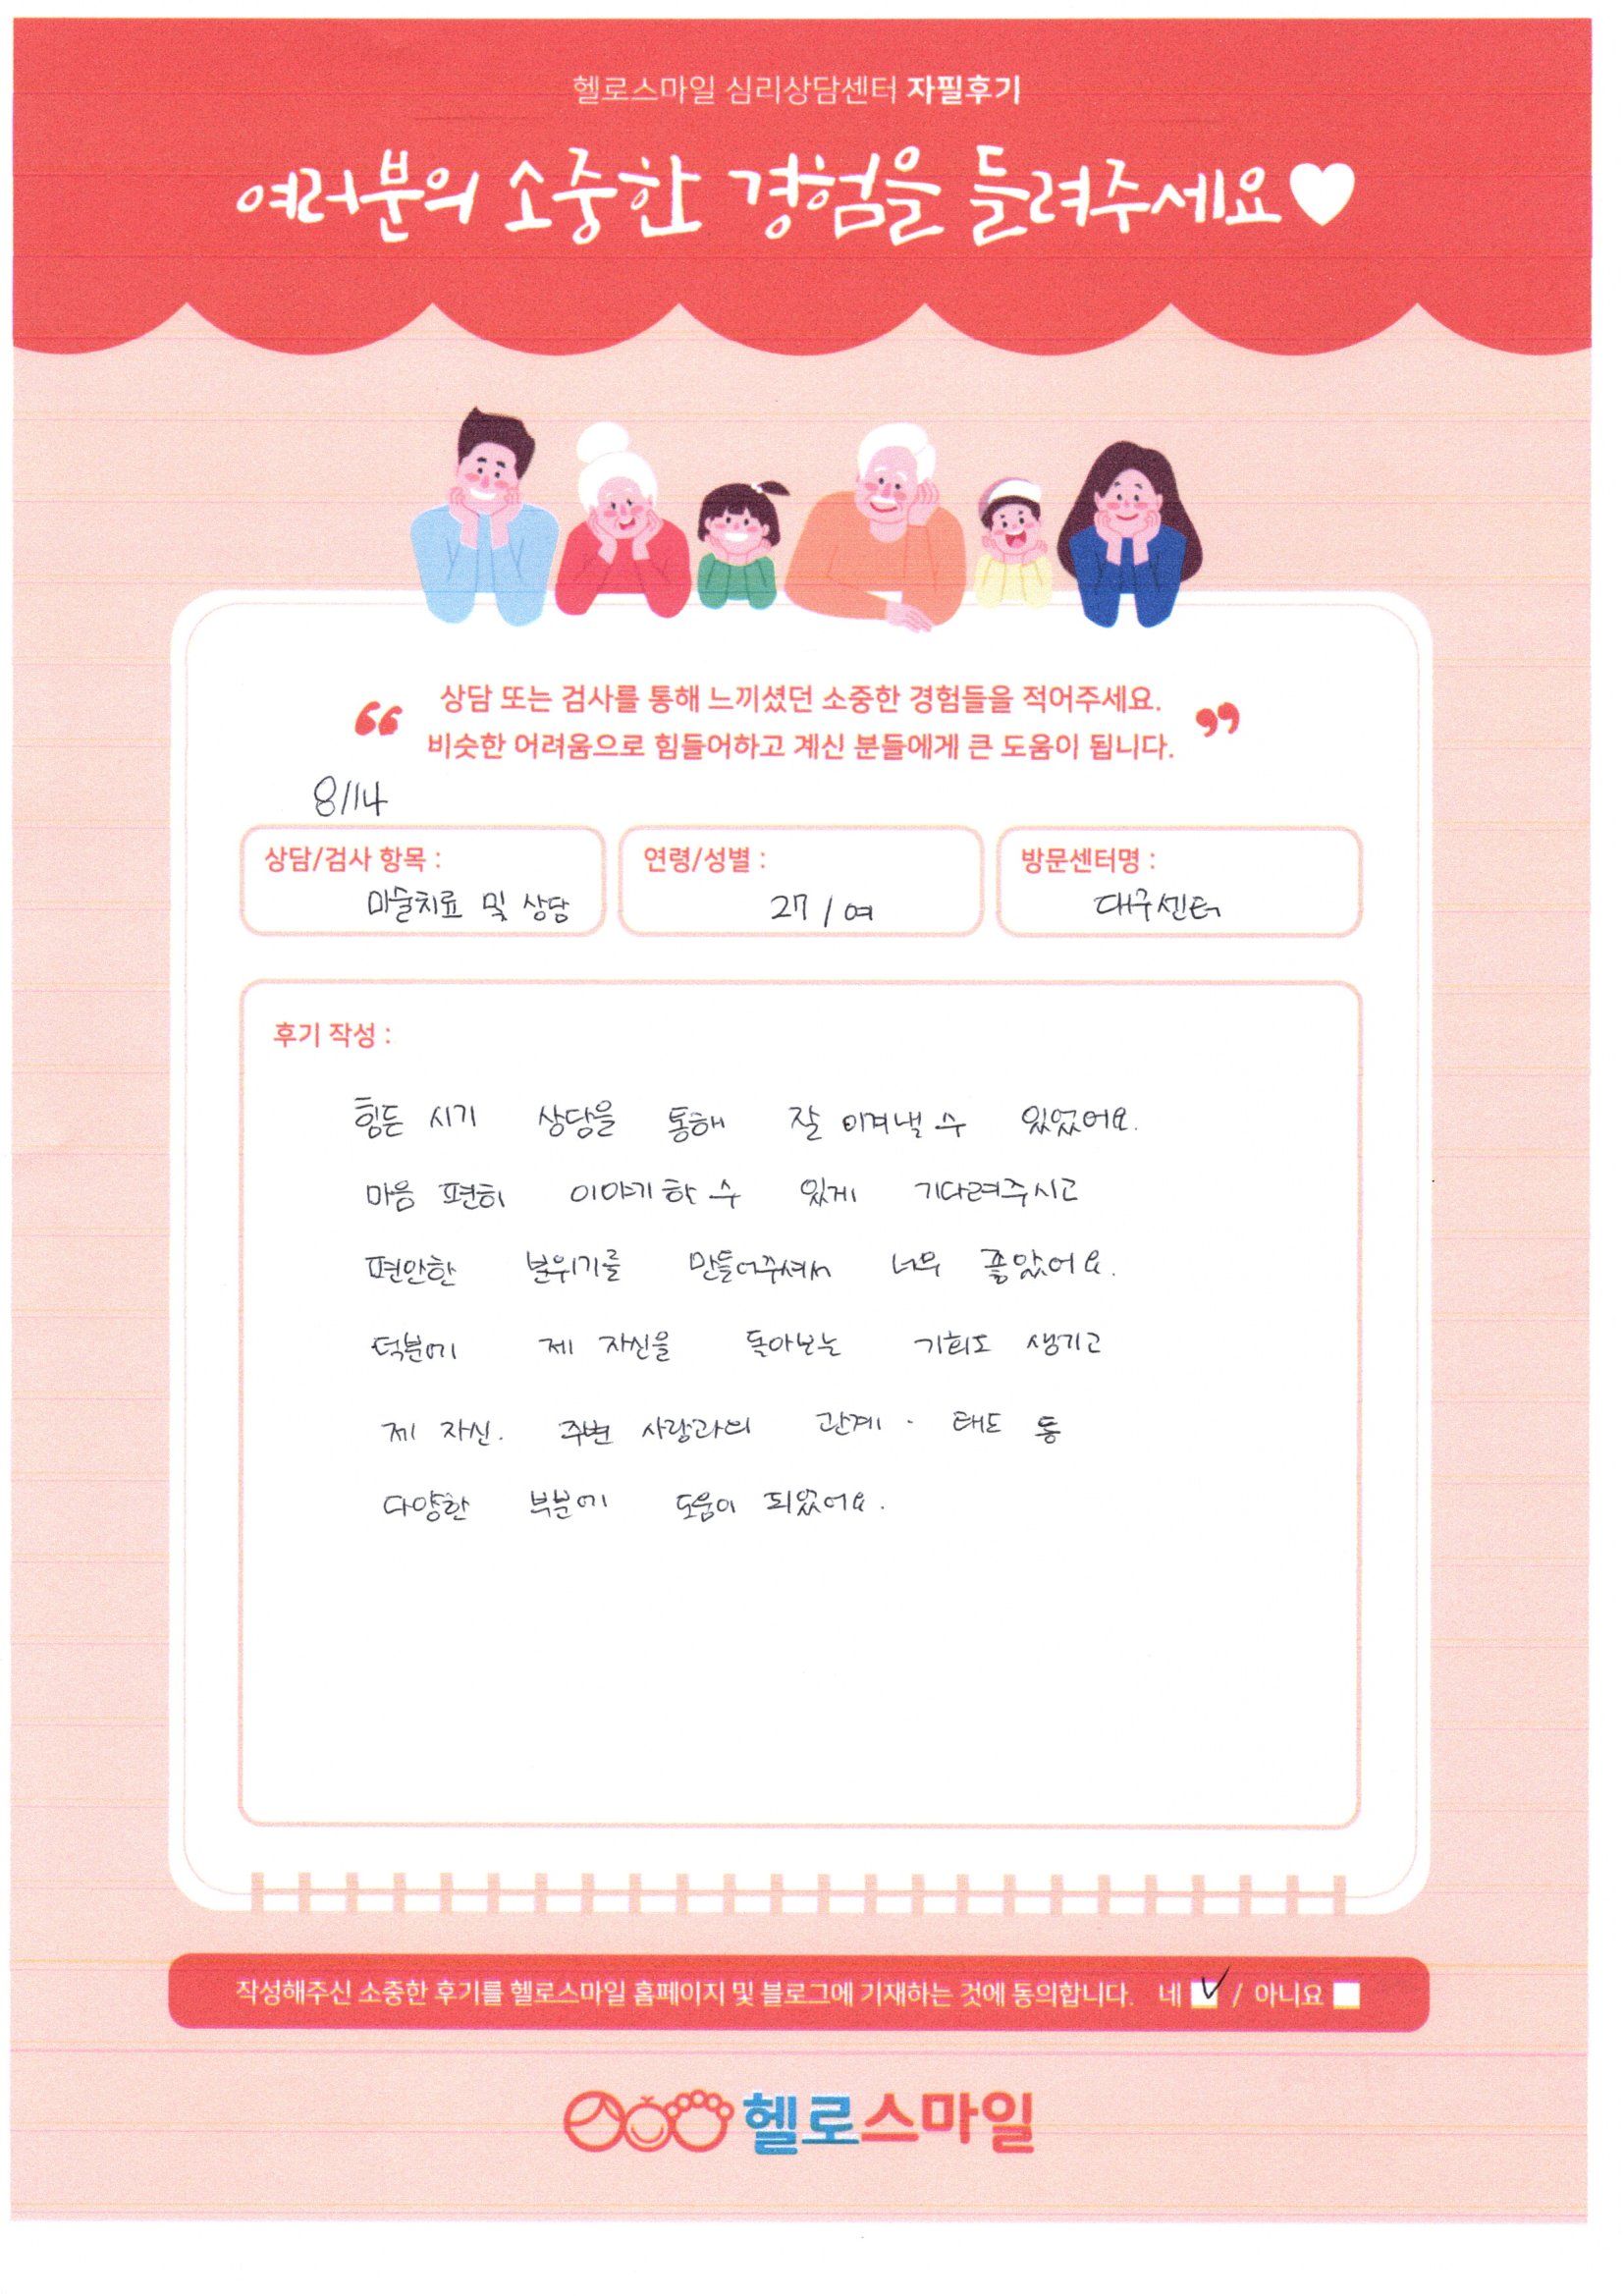 헬로스마일 심리상담센터 자필후기
여러분의 소중한 경험을 들려주세요
“ 상담 또는 검사를 통해 느끼셨던 소중한 경험들을 적어주세요. ”
비슷한 어려움으로 힘들어하고 계신 분들에게 큰 도움이 됩니다.
8/14
상담/검사 항목 : 미술치료 및 상담
연령/성별 : 27 / 여
방문센터명 : 대구센터
후기 작성 :
힘든 시기 상담을 통해 잘 이겨낼 수 있었어요.
마음 편히 이야기 할 수 있게 기다려주시고
편안한 분위기를 만들어주셔서 너무 좋았어요.
덕분에 제 자신을 돌아보는 기회도 생기고
제 자신. 주변 사람과의 관계 · 태도 등
다양한 부분에 도움이 되었어요.
작성해주신 소중한 후기를 헬로스마일 홈페이지 및 블로그에 기재하는 것에 동의합니다. 네 ✓ / 아니요
헬로스마일